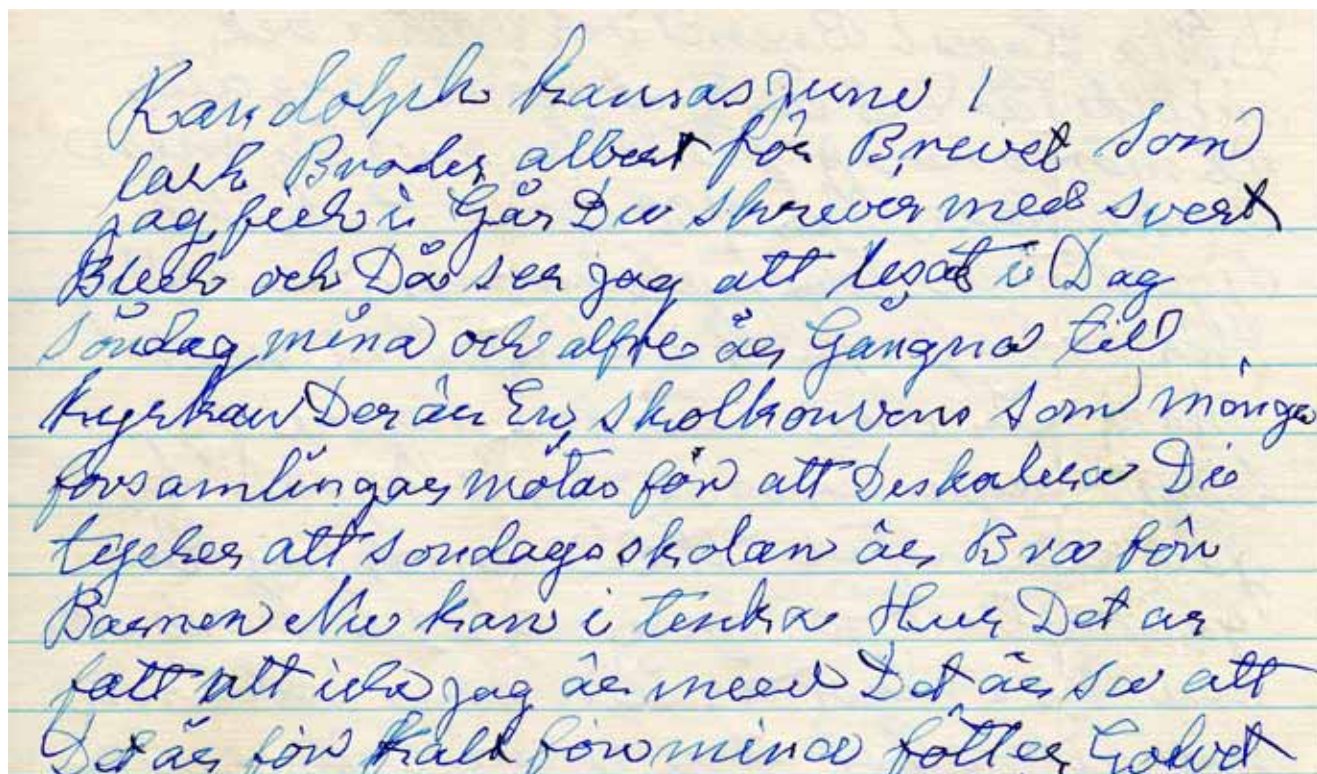 Randolph kansas June 1
tack Broder albert för Brevet Som
jag fick i Går Du skrever med svert
Bleck och Då ser jag att lesat i Dag
söndag mina och alfre är Gångna till
kyrkan Der är En skolkonvens som mönga
församlingar mötas för att Diskalera Di
tycker att sondagsskolan är Bra för
Barnen Nu kan i tenka Hur Det ar
fatt att icke jag är med Det är sa att
Det är för kalt för mina fötter Golvet